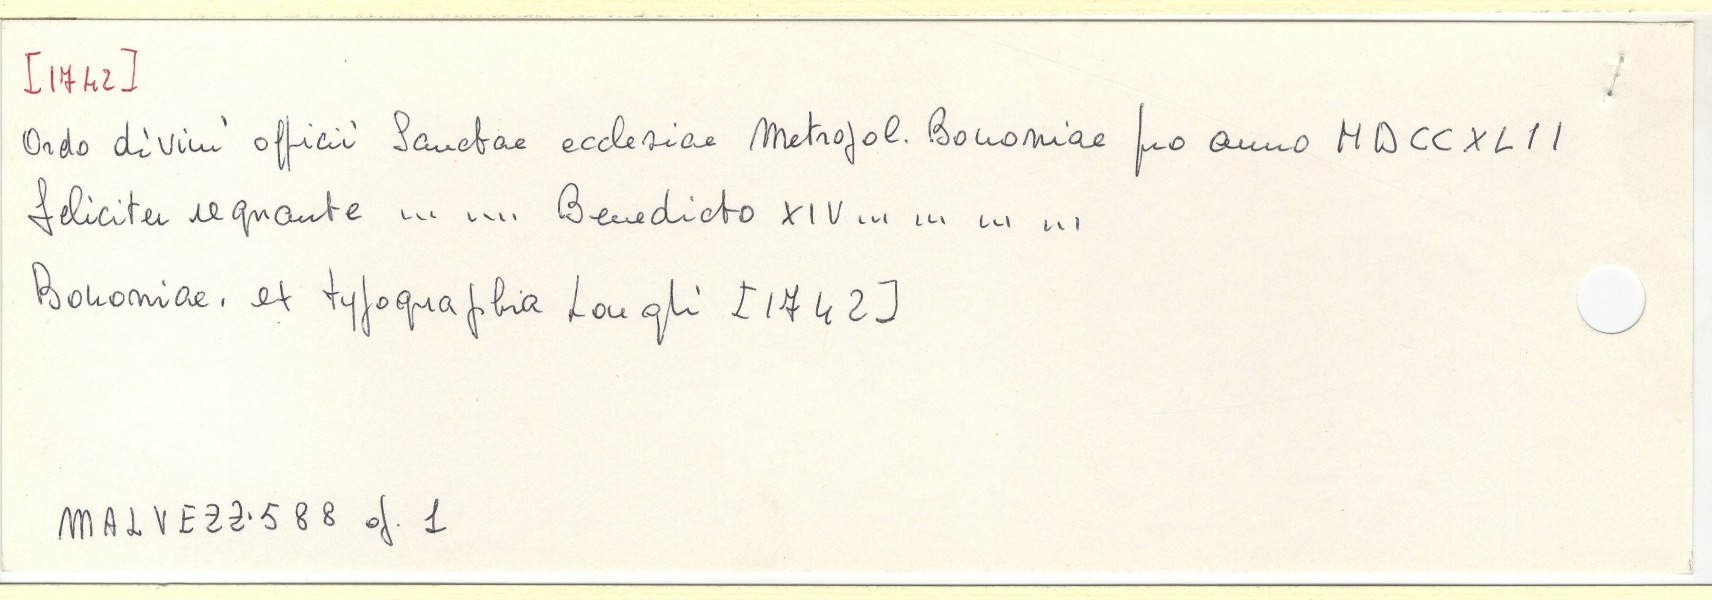 [1742]
Ordo divini officii Sanctae ecclesiae Metropol. Bononiae pro anno MDCCXLII
feliciter regnante ... .... Benedicto XIV ... ... ... ...
Bononiae. ex typographia Longhi [1742]
MALVEZZ. 588 op. 1